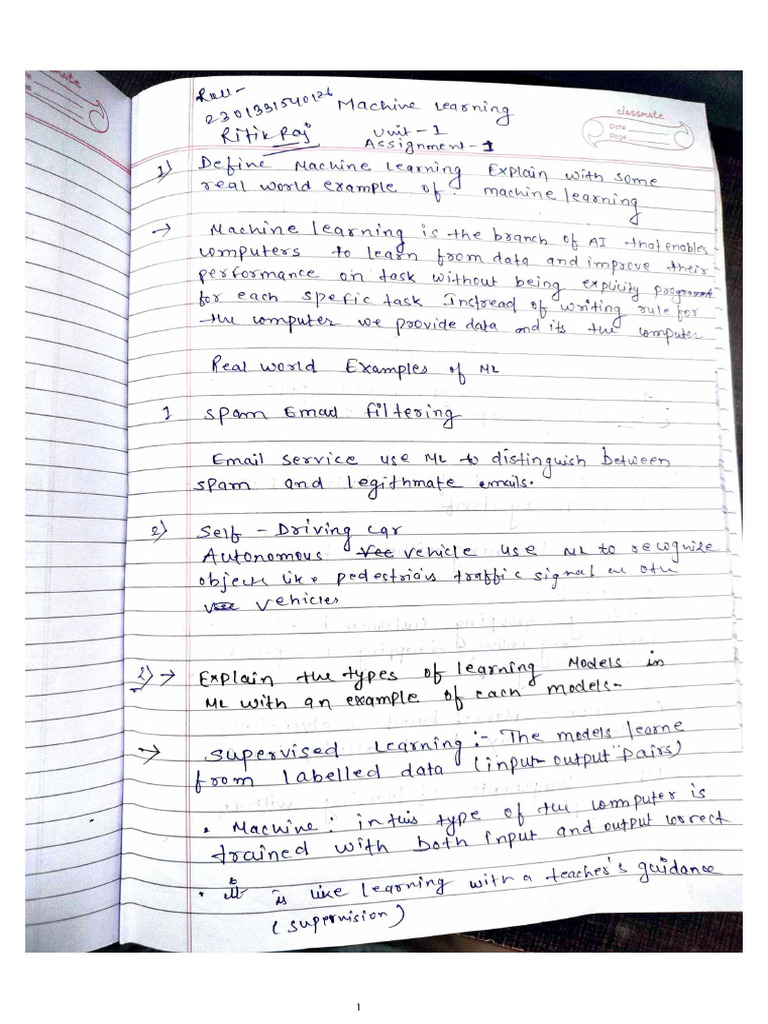 Roll-
2301331540126
Machine Learning
classmate
Date
Page
Ritik Raj
Unit-1
Assignment-1
1) Define Machine Learning Explain with some
real world example of machine learning
→ Machine learning is the branch of AI that enables
computers to learn from data and improve their
performance on task without being explicity
for each spefic task Instread of writing rule for
the computer we provide data and its the computer
Real world Examples of ML
1 Spam Email filtering
Email service use ML to distinguish between
spam and legithmate emails.
2) Self-Driving car
Autonomous vehicle use ML to recognize
objects like pedestrians traffic signal
vehicles
2) → Explain the types of learning Models in
ML with an example of each models-
→ Supervised Learning:- The models learne
from labelled data (input-output pairs)
• Machine: in this type of the computer is
trained with both input and output correct
• it is like learning with a teacher's guidance
(supervision)
1